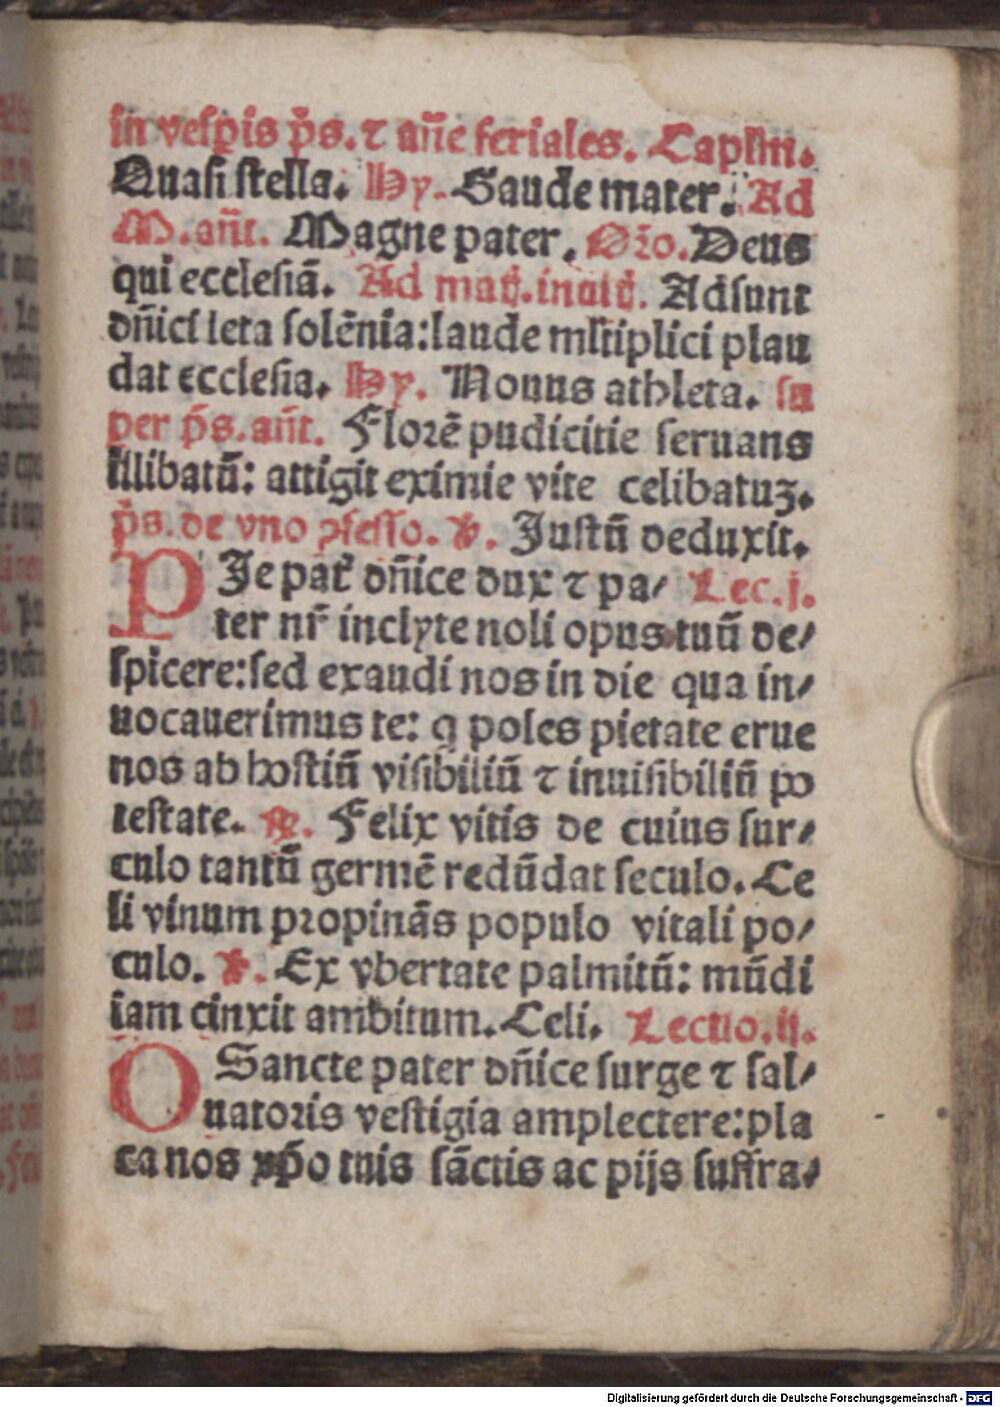 in vesꝑis p̄s. ⁊ an̄e feriales. Capl̄m.
Quasi stella. Hy. Gaude mater. Ad
M. an̄t. Magne pater. Oꝛ̄o. Deus
qui ecclesiā. Ad mat̄. inuit̄. Adsunt
dn̄ici leta solēnia: laude ml̄tiplici plau
dat ecclesia. Hy. Nouus athleta. su
per p̄s. an̄t. Floꝛē pudicitie seruans
illibatū: attigit eximie vite celibatuꝫ.
p̄s. de vno ꝯfesso. ℣. Justū deduxit.
PIe pat̄ dn̄ice dux ⁊ pa/ Lec. j.
ter nr̄ inclyte noli opus tuū de/
spicere: sed exaudi nos in die qua in/
uocauerimus te: q poles pietate erue
nos ab hostiū visibiliū ⁊ inuisibiliū po
testate. ℟. Felix vitis de cuius sur/
culo tantū germē redūdat seculo. Ce
li vinum pꝛopinās populo vitali po/
culo. ℣. Ex vbertate palmitū: mūdi
iam cinxit ambitum. Celi. Lectio. ij.
O Sancte pater dn̄ice surge ⁊ sal/
uatoꝛis vestigia amplectere: pla
ca nos xp̄o tuis sāctis ac pijs suffra/
Digitalisierung gefördert durch die Deutsche Forschungsgemeinschaft - DFG